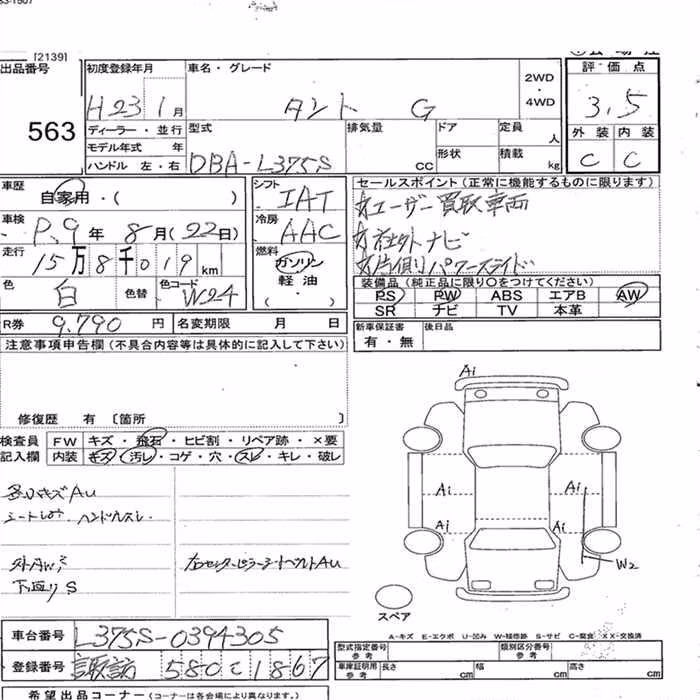 [2139]
出品番号
563
初度登録年月
H23 1月
ディーラー・並行
モデル年式 年
ハンドル 左・右
車名・グレード
タント G
2WD
・
4WD
型式
DBA-L375S
排気量
CC
ドア
形状
定員
人
積載
kg
評価点
3.5
外装 内装
C C
車歴
自家用・( )
車検
R9年 8月(22日)
走行
15万8千019km
色
白
色替
色コード
W24
シフト
IAT
冷房
AAC
燃料
ガソリン
軽油
・
( )
セールスポイント(正常に機能するものに限ります)
☆ユーザー買取車両
☆社外ナビ
☆片側パワースライド
装備品(純正品に限り○をつけてください)
PS PW ABS エアB AW
SR ナビ TV 本革
R券 9,790円
名変期限 月 日
新車保証書
有・無
後日品
注意事項申告欄(不具合内容等は具体的に記入して下さい)
修復歴 有 〔箇所 〕
検査員
記入欄
FW キズ・飛石・ヒビ割・リペア跡・×要
内装 キズ・汚レ・コゲ・穴・スレ・キレ・破レ
各ロキズAU
ハンドルスレ
下廻りS
右センターピラーシートベルトAU
Ai
Ai Ai
Ai Ai
W2
スペア
A-キズ E-エクボ U-凹み W-補修跡 S-サビ C-腐食 XX-交換済
車台番号 L375S-0394305
登録番号 諏訪 580 て 1867
型式指定番号
参考
類別区分番号
参考
車庫証明用
参考
長さ cm
幅 cm
高さ cm
希望出品コーナー(コーナーは各会場により異なります。)